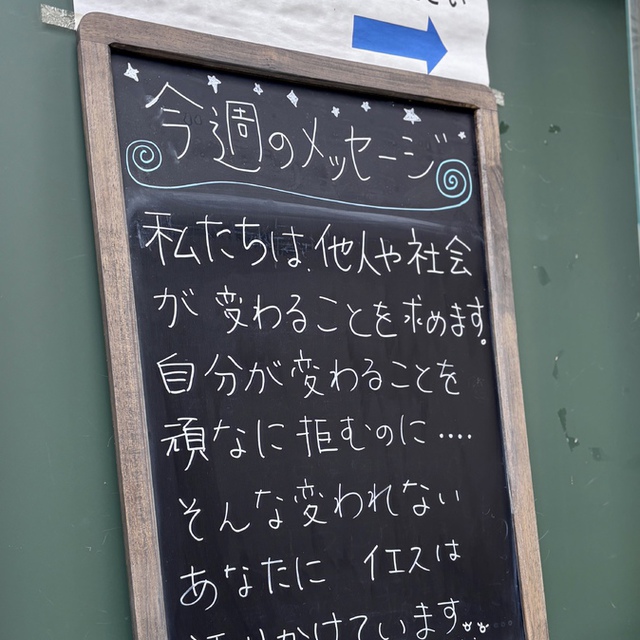 今週のメッセージ
私たちは、他人や社会
が変わることを求めます。
自分が変わることを
頑なに拒むのに‥‥
そんな変われない
あなたに イエスは